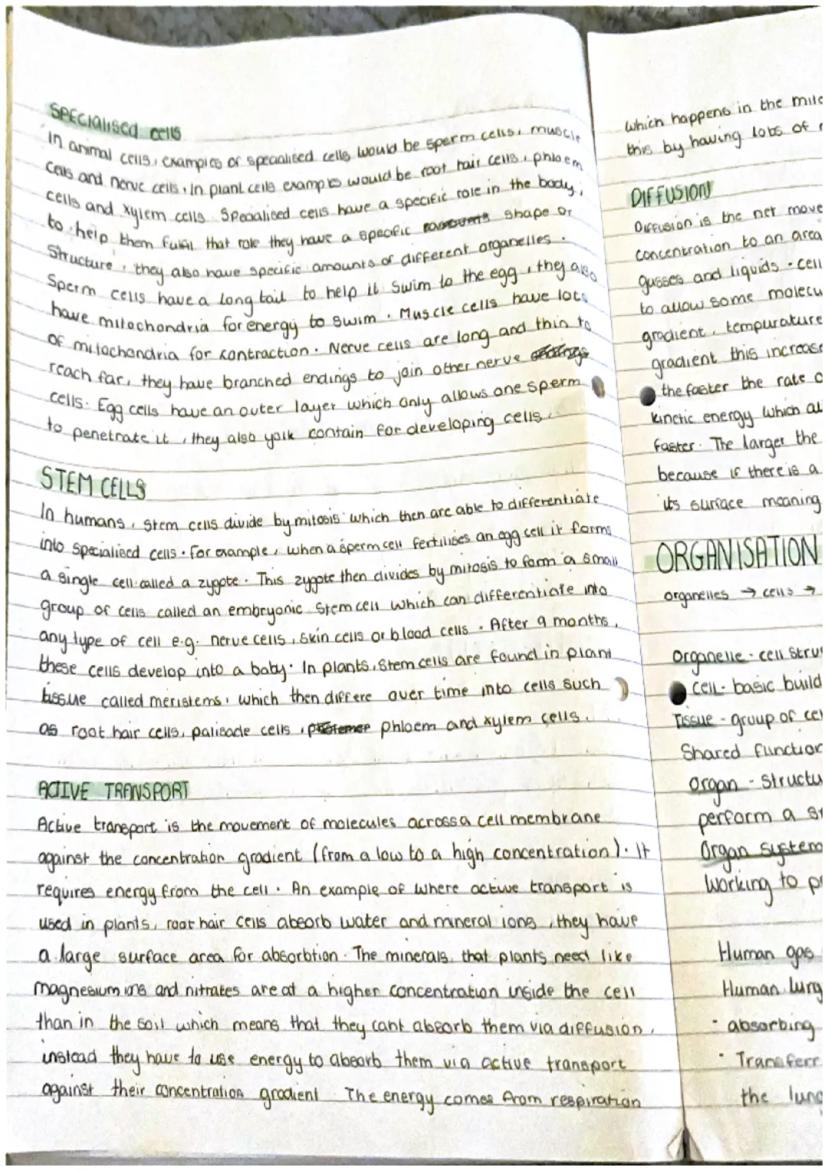 SPECIALISED CELLS
In animal cells, examples of specialised cells would be sperm cells, muscle
cells and nerve cells. In plant cells examples would be root hair cells, phloem
cells and xylem cells. Specialised cells have a specific role in the body,
to help them fulfil that role they have a specific shape or
structure, they also have specific amounts of different organelles.
Sperm cells have a long tail to help it swim to the egg, they also
have mitochondria for energy to swim. Muscle cells have lots
of mitochondria for contraction. Nerve cells are long and thin to
reach far, they have branched endings to join other nerve
cells. Egg cells have an outer layer which only allows one sperm
to penetrate it, they also yolk contain for developing cells.
STEM CELLS
In humans, stem cells divide by mitosis which then are able to differentiate
into specialised cells. For example, when a sperm cell fertilises an egg cell it forms
a single cell called a zygote. This zygote then divides by mitosis to form a small
group of cells called an embryonic stem cell which can differentiate into
any type of cell e.g. nerve cells, skin cells or blood cells. After 9 months,
these cells develop into a baby. In plants, stem cells are found in plant
tissue called meristems, which then differe over time into cells such
as root hair cells, palisade cells, phloem and xylem cells.
ACTIVE TRANSPORT
Active transport is the movement of molecules across a cell membrane
against the concentration gradient (from a low to a high concentration). It
requires energy from the cell. An example of where active transport is
used in plants, root hair cells absorb water and mineral ions, they have
a large surface area for absorbtion. The minerals that plants need like
magnesium ions and nitrates are at a higher concentration inside the cell
than in the soil which means that they cant absorb them via diffusion,
instead they have to use energy to absorb them via active transport
against their concentration gradient The energy comes from respiration
which happens in the
this by having lots of
DIFFUSION
Diffusion is the net move
concentration to an area
gasses and liquids. cell
to allow some molecu
gradient, tempurature
gradient this increase
the faster the rate o
kinetic energy which al
faster. The larger the
because if there is a
its surface meaning
ORGANISATION
organelles → cells →
Organelle - cell stru
cell - basic build
Tissue - group of ce
shared function
organ - structu
perform a s
Organ system
working to p
Human gas
Human lung
• absorbing
• Transferr
the lung